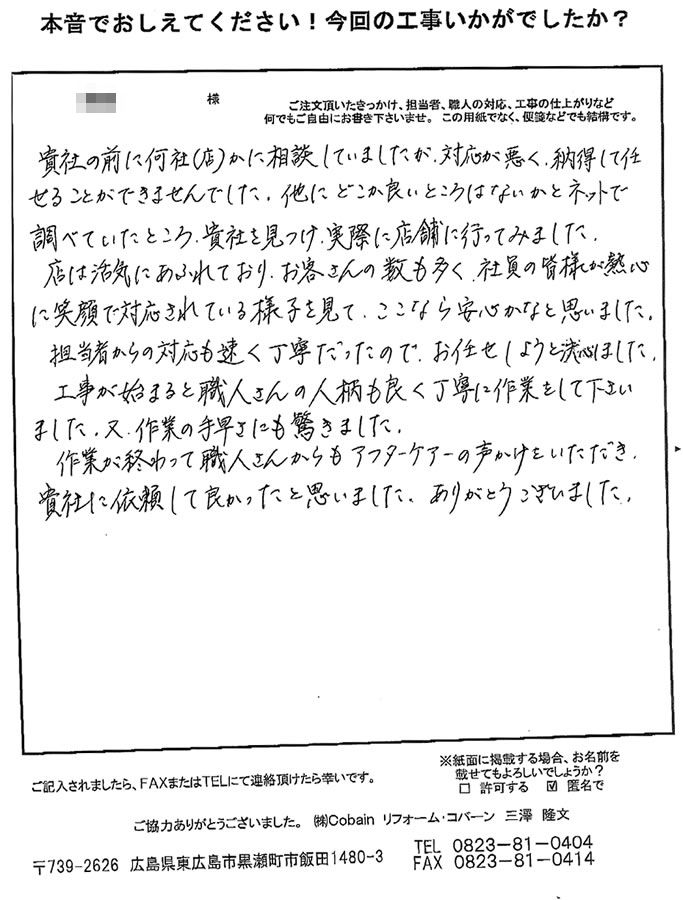 本音でおしえてください！今回の工事いかがでしたか？
様
ご注文頂いたきっかけ、担当者、職人の対応、工事の仕上がりなど
何でもご自由にお書き下さいませ。この用紙でなく、便箋などでも結構です。
貴社の前に何社(店)かに相談していましたが、対応が悪く、納得して任
せることができませんでした。他にどこか良いところはないかとネットで
調べていたところ、貴社を見つけ、実際に店舗に行ってみました。
店は活気にあふれており、お客さんの数も多く、社員の皆様が熱心
に笑顔で対応されている様子を見て、ここなら安心かなと思いました。
担当者からの対応も速く丁寧だったので、お任せしようと決心しました。
工事が始まると職人さんの人柄も良く丁寧に作業をして下さい
ました。又、作業の手早さにも驚きました。
作業が終わって職人さんからもアフターケアーの声かけをいただき、
貴社に依頼して良かったと思いました。ありがとうございました。
ご記入されましたら、FAXまたはTELにて連絡頂けたら幸いです。
※紙面に掲載する場合、お名前を
載せてもよろしいでしょうか？
□ 許可する ☑ 匿名で
ご協力ありがとうございました。㈱Cobain リフォーム・コバーン 三澤 隆文
〒739-2626 広島県東広島市黒瀬町市飯田1480-3
TEL 0823-81-0404
FAX 0823-81-0414